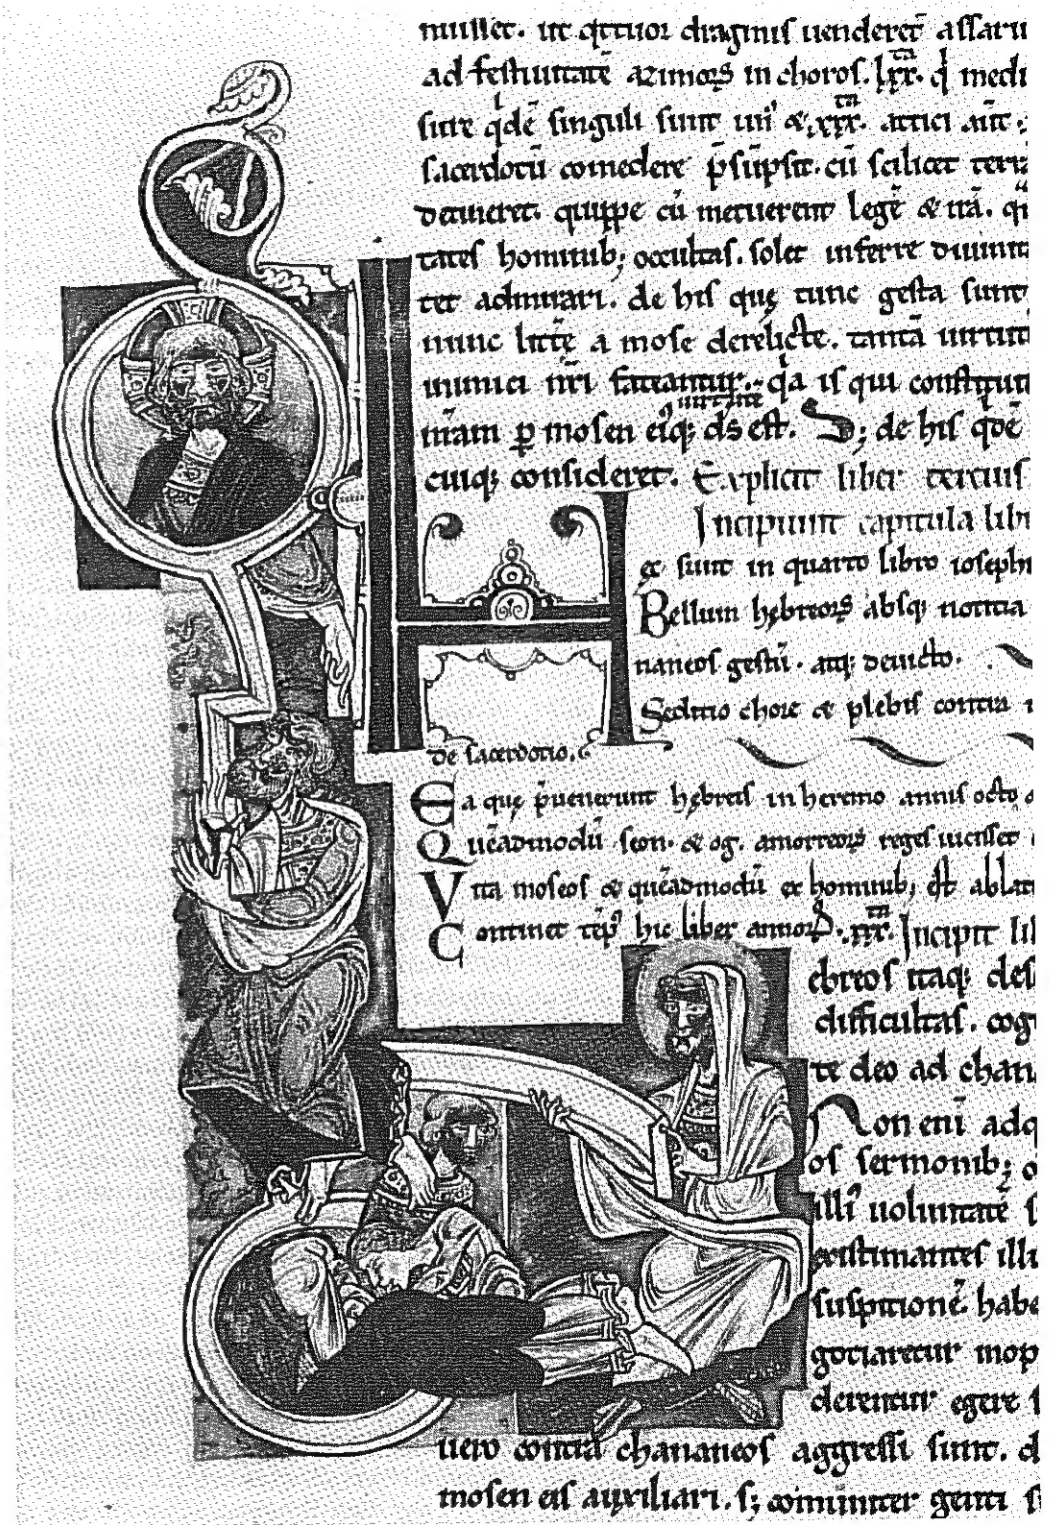 muisset. ut q̄ttuor dragmis uenderet̄ assarii
ad festiuitatē azimorꝝ in choros. lxx. q̇ medi
sint q̇dē singuli sunt uiri &. xxx. attici
sacerdotū comedere p̄sūpsit. cū scilicet
detineret. quippe cū metuerent legē & irā. q̄
tates hominib; occultas. solet inferre diuinit
ter admirari. de his quę tunc gesta sunt
nunc littę a mose derelictę. tantā uirtut
inimici nr̄i fateantur. q̇a is qui constituit
uirtute
nr̄am ꝑ mosen eiq; ds est. S; de his q̇dē
cuiq; consideret. Explicit liber tertius
Incipiunt capitula libri
H ęc sunt in quarto libro iosephi
Bellum hębreorꝝ absq; noticia
naneos gestū. atq; deuicto.
Seditio chore & plebis contra
de sacerdotio.
Ea quę p̄uenerunt hębreis in heremo annis octo
Quēadmodū seon. & og. amorreorꝝ reges uicisset
Vita moseos & quēadmodū ex hominib; est ablat
Continet tēp' hic liber annorꝝ. xxx. Incipit lib
ebreos itaq; des
difficultas. cog
te deo ad chan
Non enī adq
os sermonib;
illi' uoluntatē
existimantes illi
suspitionē habe
gotiaretur mop
derentur egere
uero contra chananeos aggressi sunt. d
mosen eis auxiliari. s; comuniter genti s